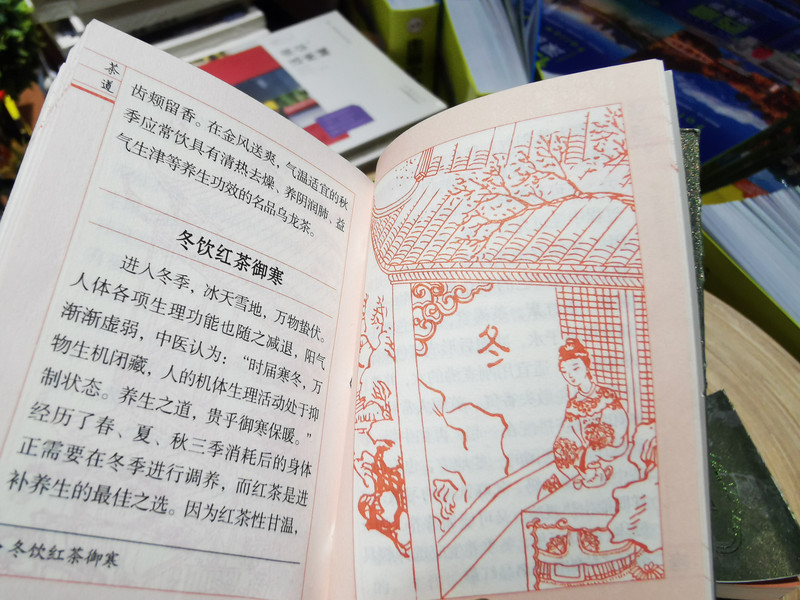 茶道
齿颊留香。在金风送爽，气温适宜的秋
季应常饮具有清热去燥、养阴润肺、益
气生津等养生功效的名品乌龙茶。
冬饮红茶御寒
进入冬季，冰天雪地，万物蛰伏。
人体各项生理功能也随之减退，阳气
渐渐虚弱，中医认为：“时届寒冬，万
物生机闭藏，人的机体生理活动处于抑
制状态。养生之道，贵乎御寒保暖。”
经历了春、夏、秋三季消耗后的身体
正需要在冬季进行调养，而红茶是进
补养生的最佳之选。因为红茶性甘温，
冬饮红茶御寒
冬